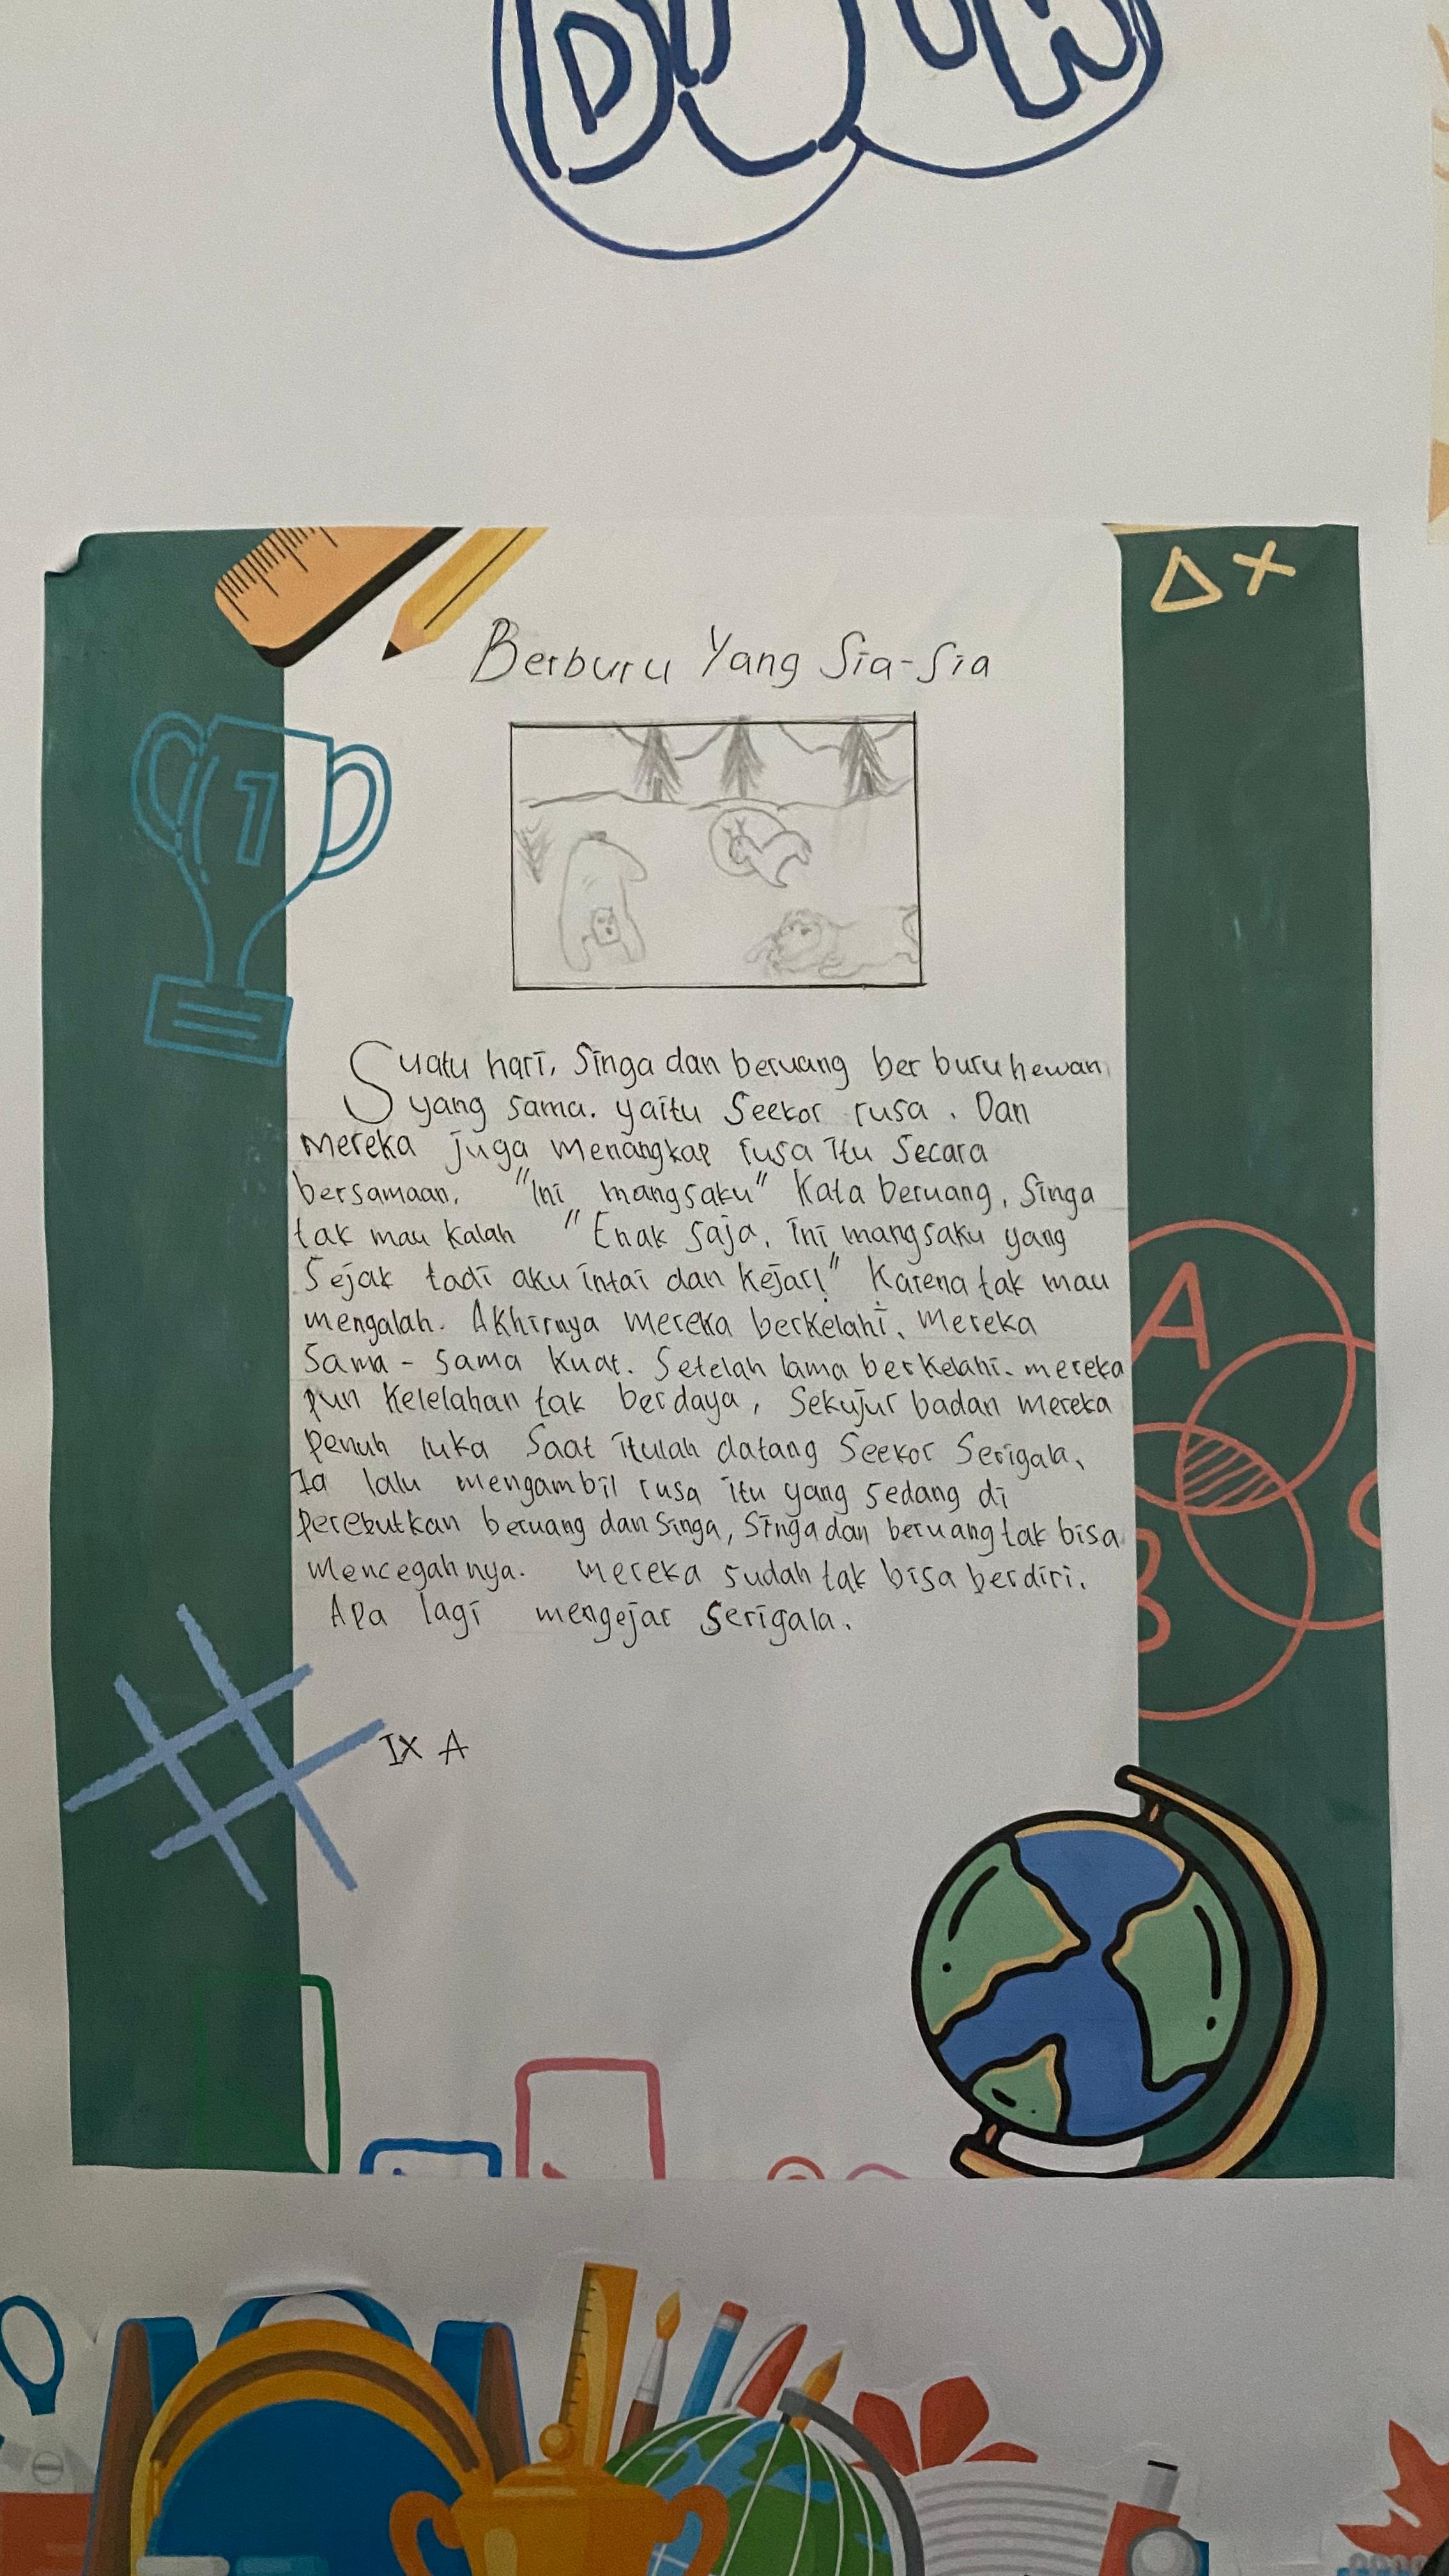 Berburu Yang Sia-Sia
Suatu hari, Singa dan beruang ber buru hewan
yang sama. yaitu Seekor rusa. Dan
Mereka juga menangkap rusa itu Secara
bersamaan. "Ini mangsaku" Kata beruang, Singa
tak mau kalah "Enak saja, ini mangsaku yang
Sejak tadi aku intai dan Kejar!" Karena tak mau
mengalah. Akhirnya mereka berkelahi, Mereka
Sama - sama kuat. Setelah lama berkelahi. mereka
pun Kelelahan tak berdaya, Sekujur badan mereka
Penuh luka Saat itulah datang Seekor Serigala,
Ia lalu mengambil rusa itu yang sedang di
perebutkan beruang dan Singa, Singa dan beruang tak bisa
Mencegahnya. Mereka sudah tak bisa berdiri.
Apa lagi mengejar Serigala.
IX A
1
A
B
C